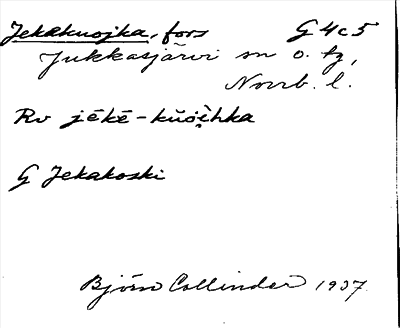 Jekakuojka, fors G 4c5
Jukkasjärvi sn o. tg,
Norrb. l.
Rv jēkē-kŭọi̯hka
G Jekakoski
Björn Collinder 1937.